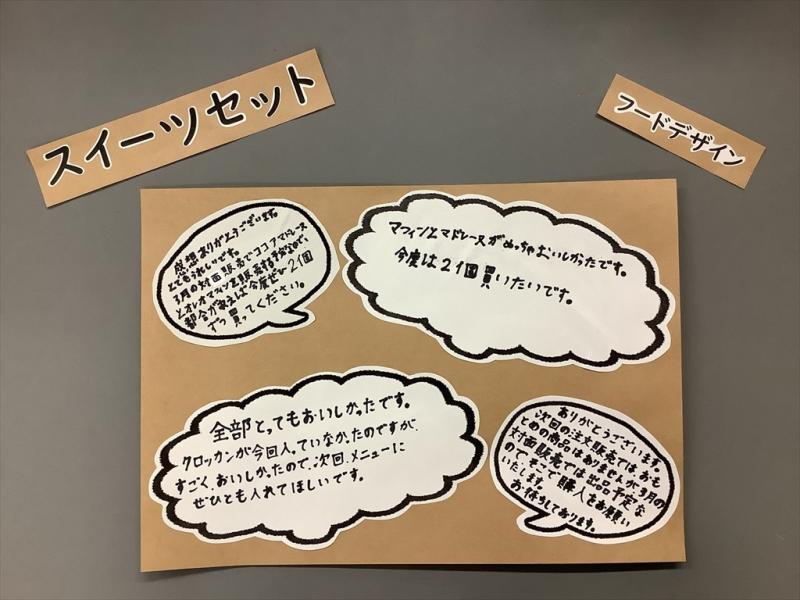 スイーツセット
フードデザイン
感想ありがとうございます。
とてもうれしいです。
3月の対面販売でココアマドレーヌ
とオレオマフィンを販売する予定なので、
都合が合えば今度ぜひ2個
ずつ買ってください。
マフィンとマドレーヌがめっちゃおいしかったです。
今度は2個買いたいです。
全部とってもおいしかったです。
クロッカンが今回入っていなかったのですが、
すごくおいしかったので、次回、メニューに
ぜひとも入れてほしいです。
ありがとうございます。
次回の注文販売ではおもと
めの商品はありませんが、3月の
対面販売では出品予定な
ので、そこで購入をお願い
いたします。
お待ちしております。